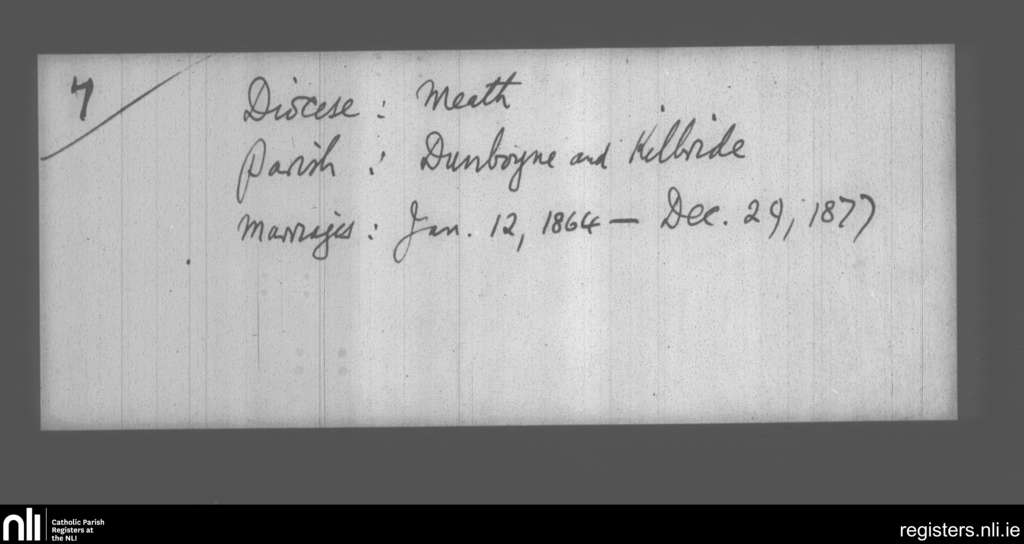 7
Diocese : Meath
Parish : Dunboyne and Kilbride
Marriages : Jan. 12, 1864 — Dec. 29, 1877
nli
Catholic Parish
Registers at
the NLI
registers.nli.ie